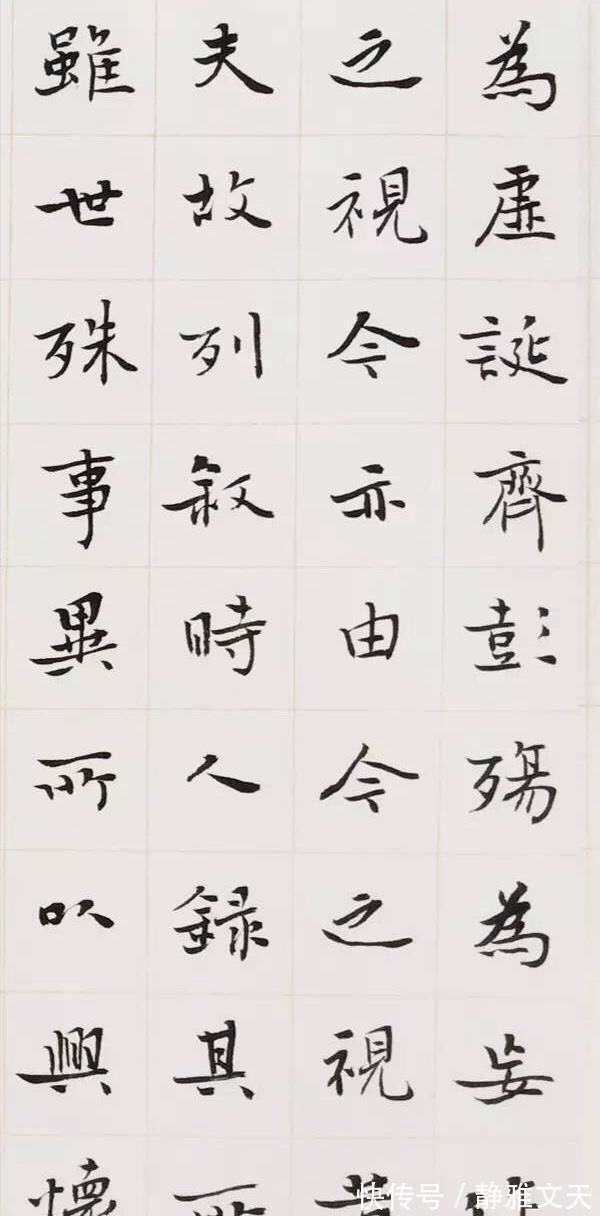 為虛誕齊彭殤為妄
之視今亦由今之視
夫故列叙時人録其
雖世殊事異所以興懷
快传号 / 静雅文天